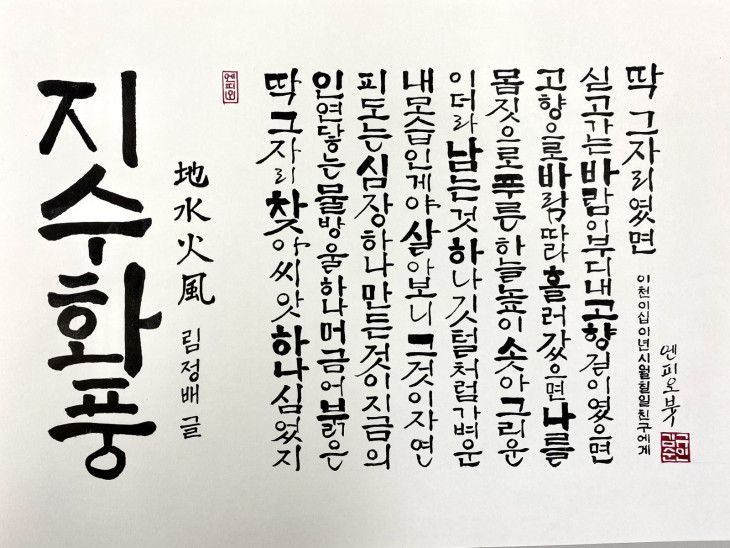 지수화풍
地水火風 림정배 글
엔피오
딱 그자리 찾아 씨앗 하나 심었지
인연닿는 물방울하나 머금어 붉은
피도는 심장하나 만든것이 지금의
내모습인게야 살아보니 그것이 자연
이더라 남는것 하나 깃털처럼 가벼운
몸짓으로 푸른 하늘높이 솟아 그리운
고향으로 바람따라 흘러갔으면 나를
싣고가는 바람이 부디 내고향 길이였으면
딱 그자리였면
이천이십이년시월칠일친구에게
엔피오 붓